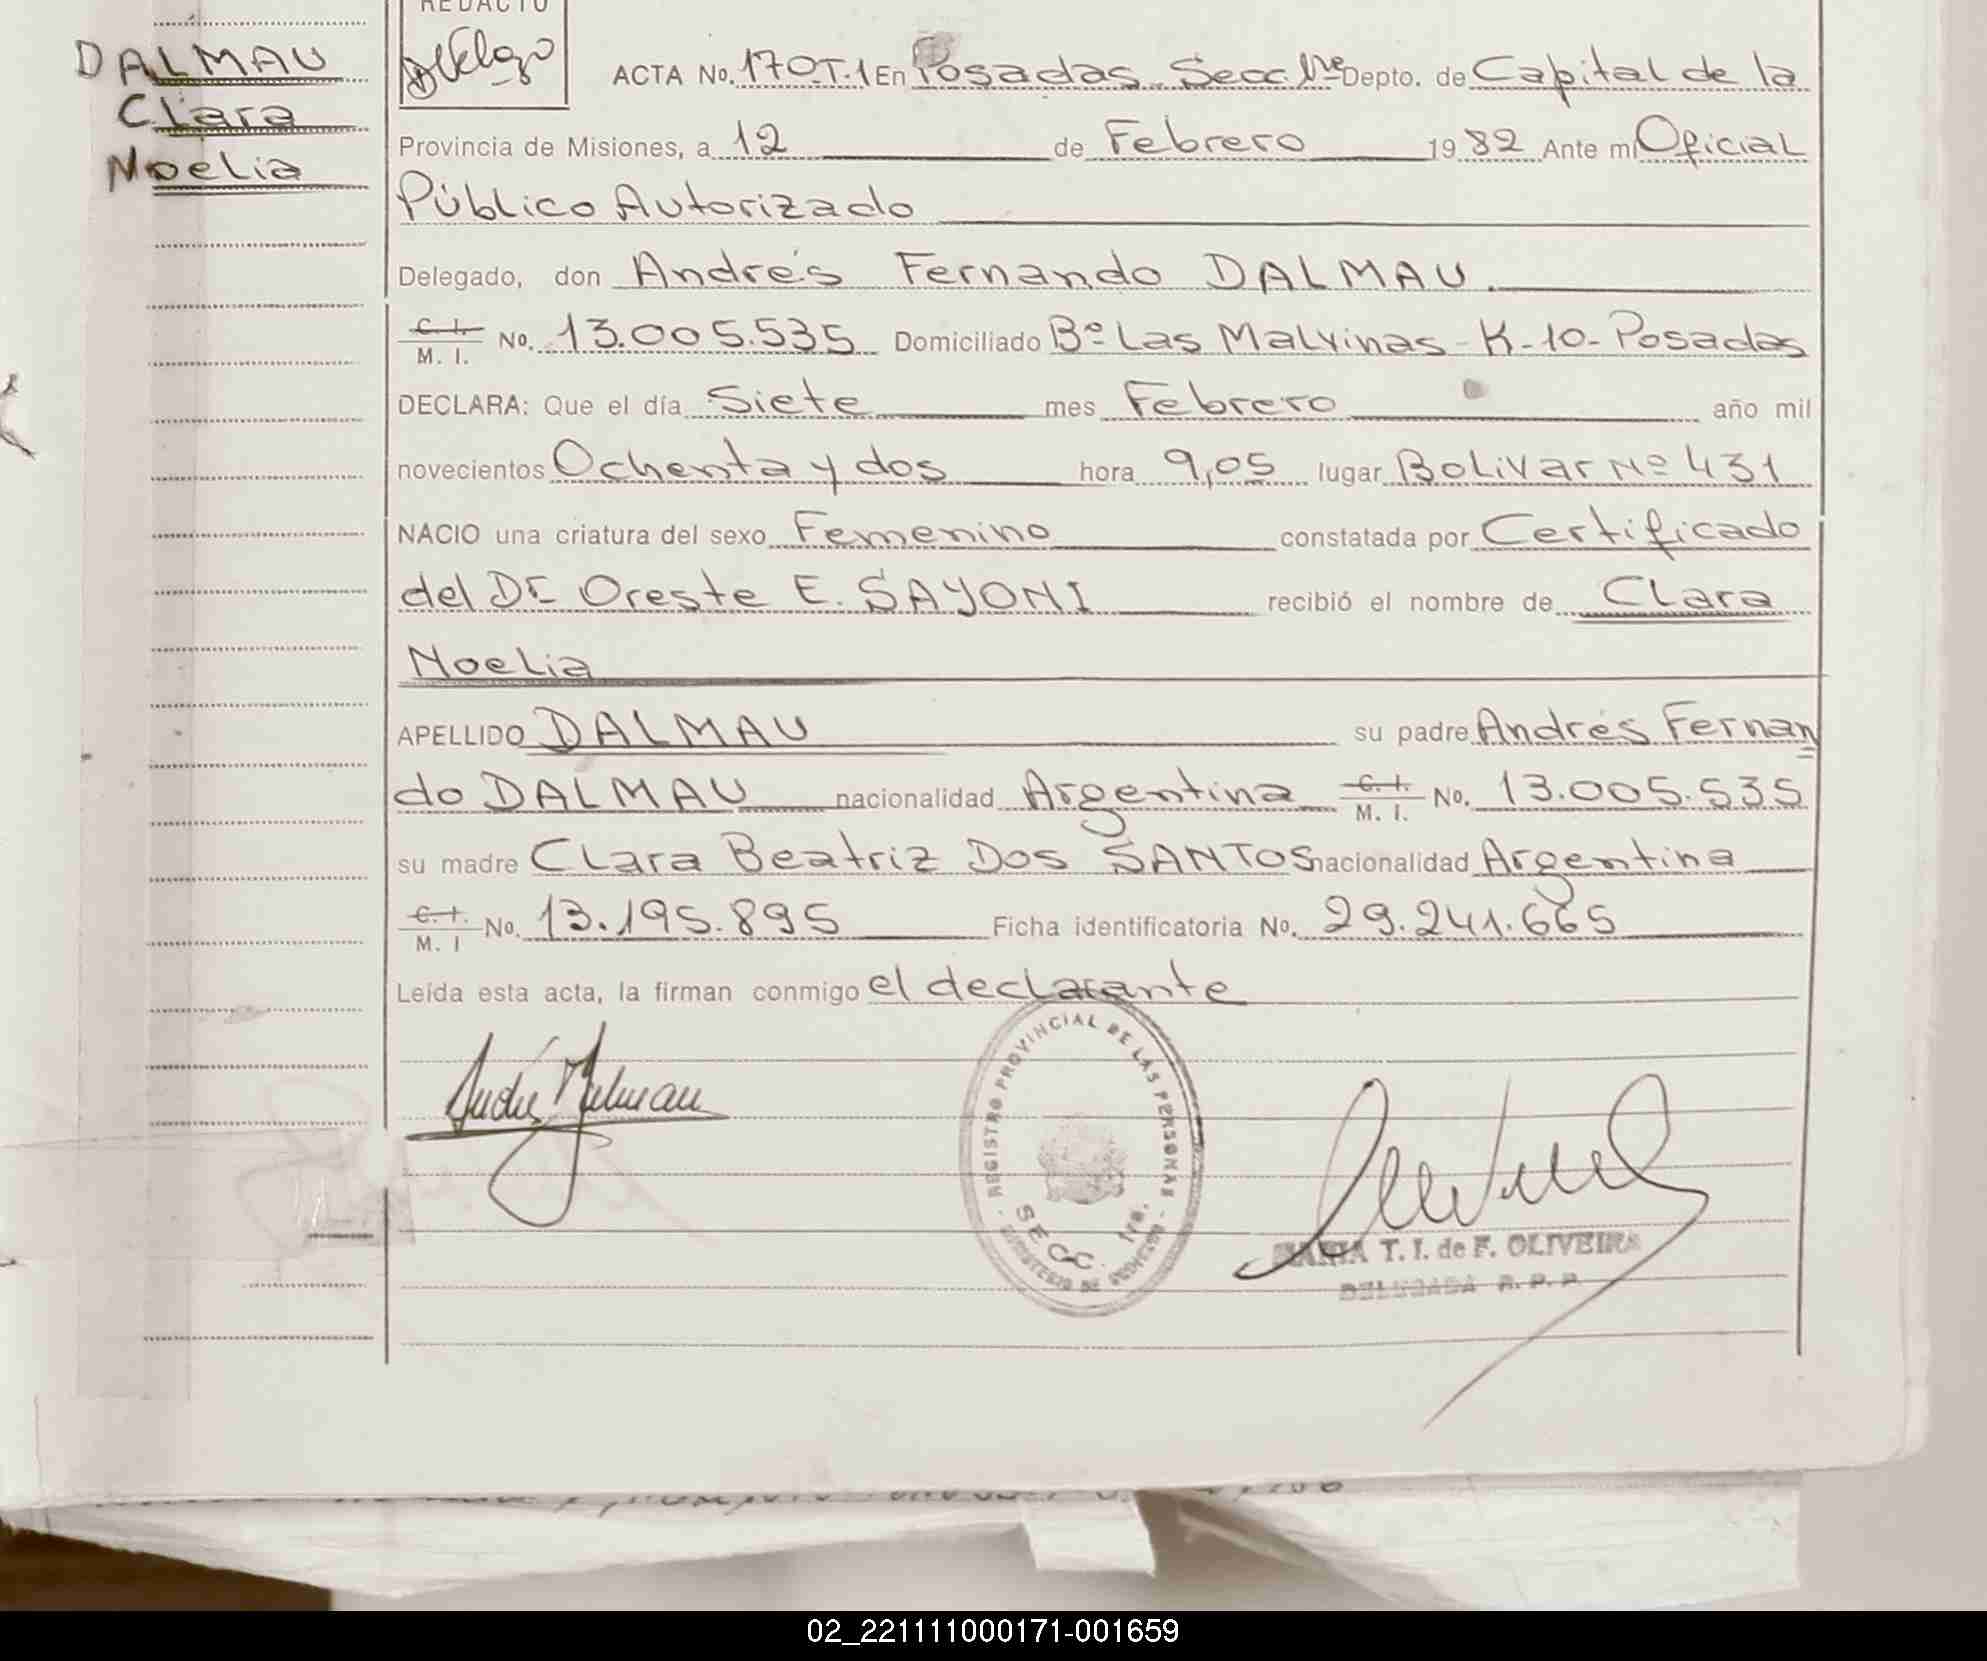 DALMAU
Clara
Noelia
REDACTO
ACTA No. 170 T.1 En Posadas Secc. 1ra Depto. de Capital de la
Provincia de Misiones, a 12 de Febrero 19 82 Ante mi Oficial
Público Autorizado
Delegado, don Andrés Fernando DALMAU.
C. I. / M. I. No. 13.005.535 Domiciliado Bº Las Malvinas - K-10- Posadas
DECLARA: Que el día Siete mes Febrero año mil
novecientos Ochenta y dos hora 9,05 lugar Bolivar Nº 431
NACIO una criatura del sexo Femenino constatada por Certificado
del Dr Oreste E. SAYONI recibió el nombre de Clara
Noelia
APELLIDO DALMAU su padre Andrés Fernan
do DALMAU nacionalidad Argentina C. I. / M. I. No. 13.005.535
su madre Clara Beatriz Dos SANTOS nacionalidad Argentina
C. I. / M. I No. 13.195.895 Ficha identificatoria No. 29.241.665
Leída esta acta, la firman conmigo el declarante
REGISTRO PROVINCIAL DE LAS PERSONAS
SECC. 1ra.
MINISTERIO DE GOBIERNO
MARIA T. I. de F. OLIVEIRA
DELEGADA R. P. P.
02_221111000171-001659